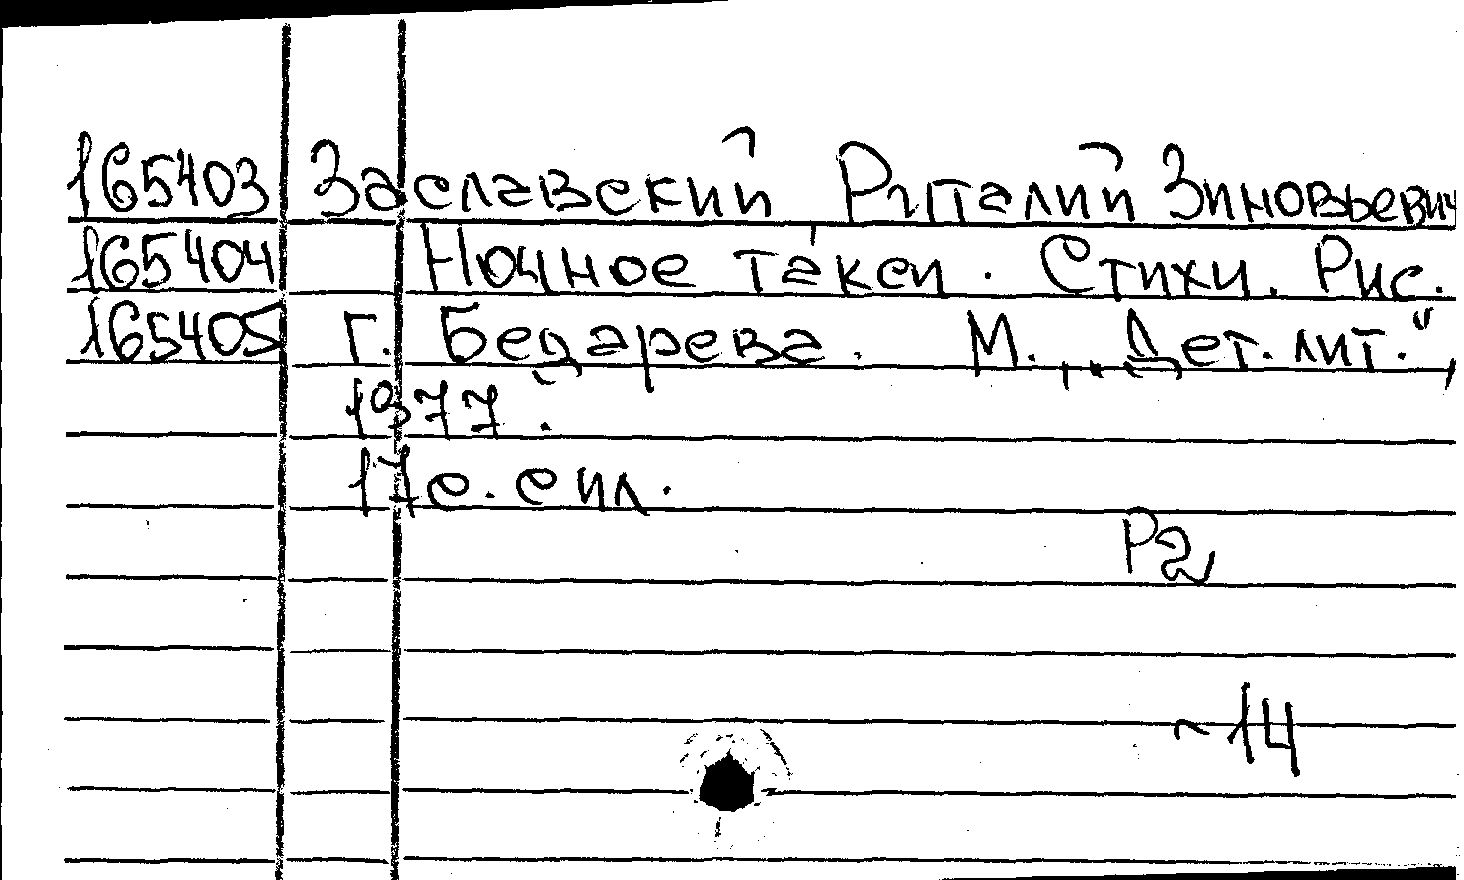 165403 Заславский Риталий Зиновьевич
165404 Ночное такси. Стихи. Рис.
165405 г. Бедарева. М., „Дет. лит.",
1977.
17с. с ил.
Р2
~14